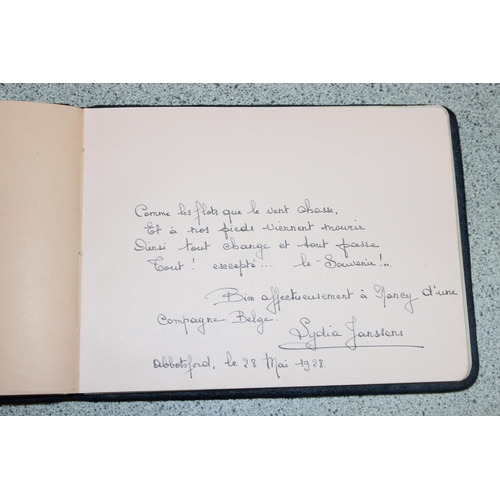 Comme les flots que le vent chasse,
Et à nos pieds viennent mourir
Ainsi tout change et tout passe
Tout! escepté... le "Souvenir!"..
Bien affectueusement à Nancy d'une
Compagne Belge.
Lydia Janssens
Abbotsford, le 28 Mai 1928.